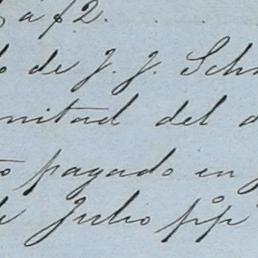 a f 2.
de J. J. Sch
mitad del
pagado en
Julio p/p